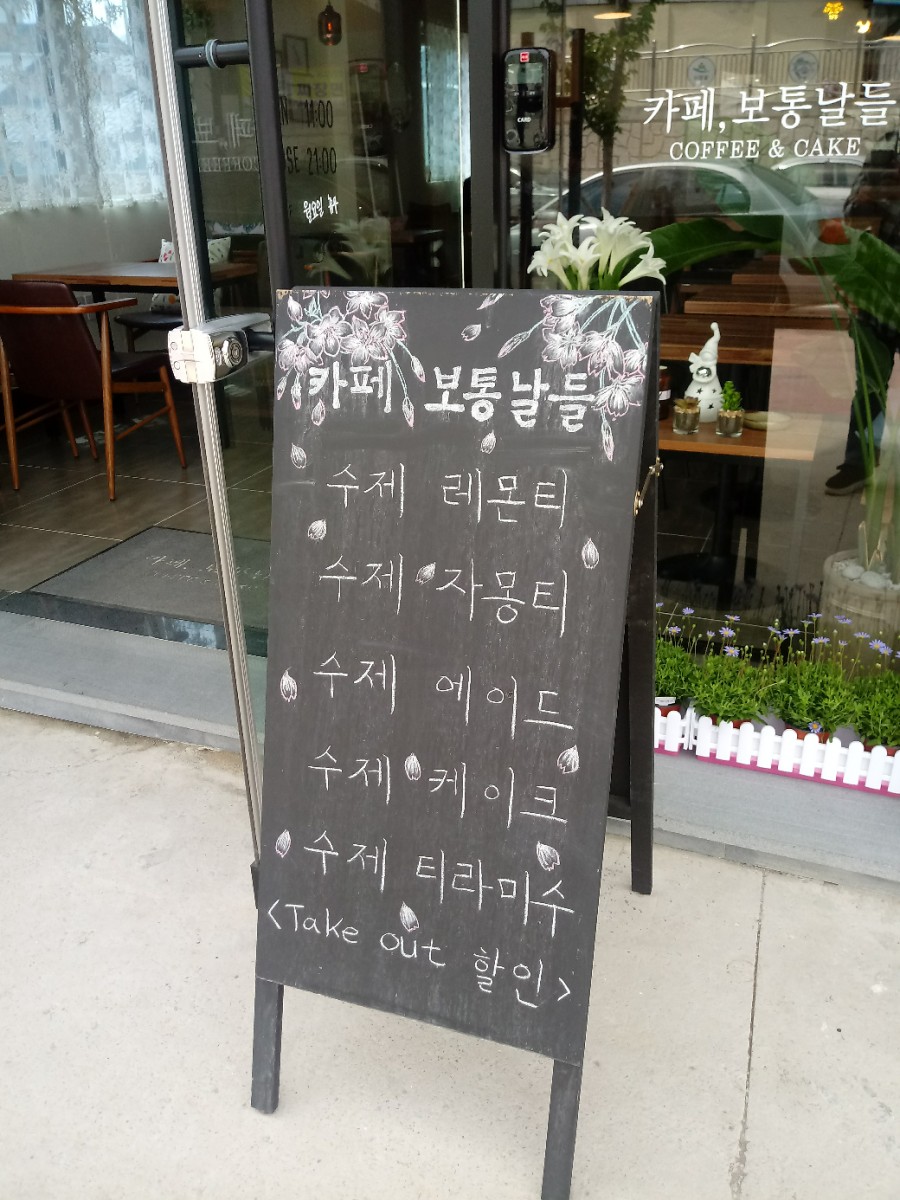 14:00
SE 21:00
월요일 휴무
CARD
카페, 보통날들
COFFEE & CAKE
카페 보통날들
수제 레몬티
수제 자몽티
수제 에이드
수제 케이크
수제 티라미수
<Take out 할인>